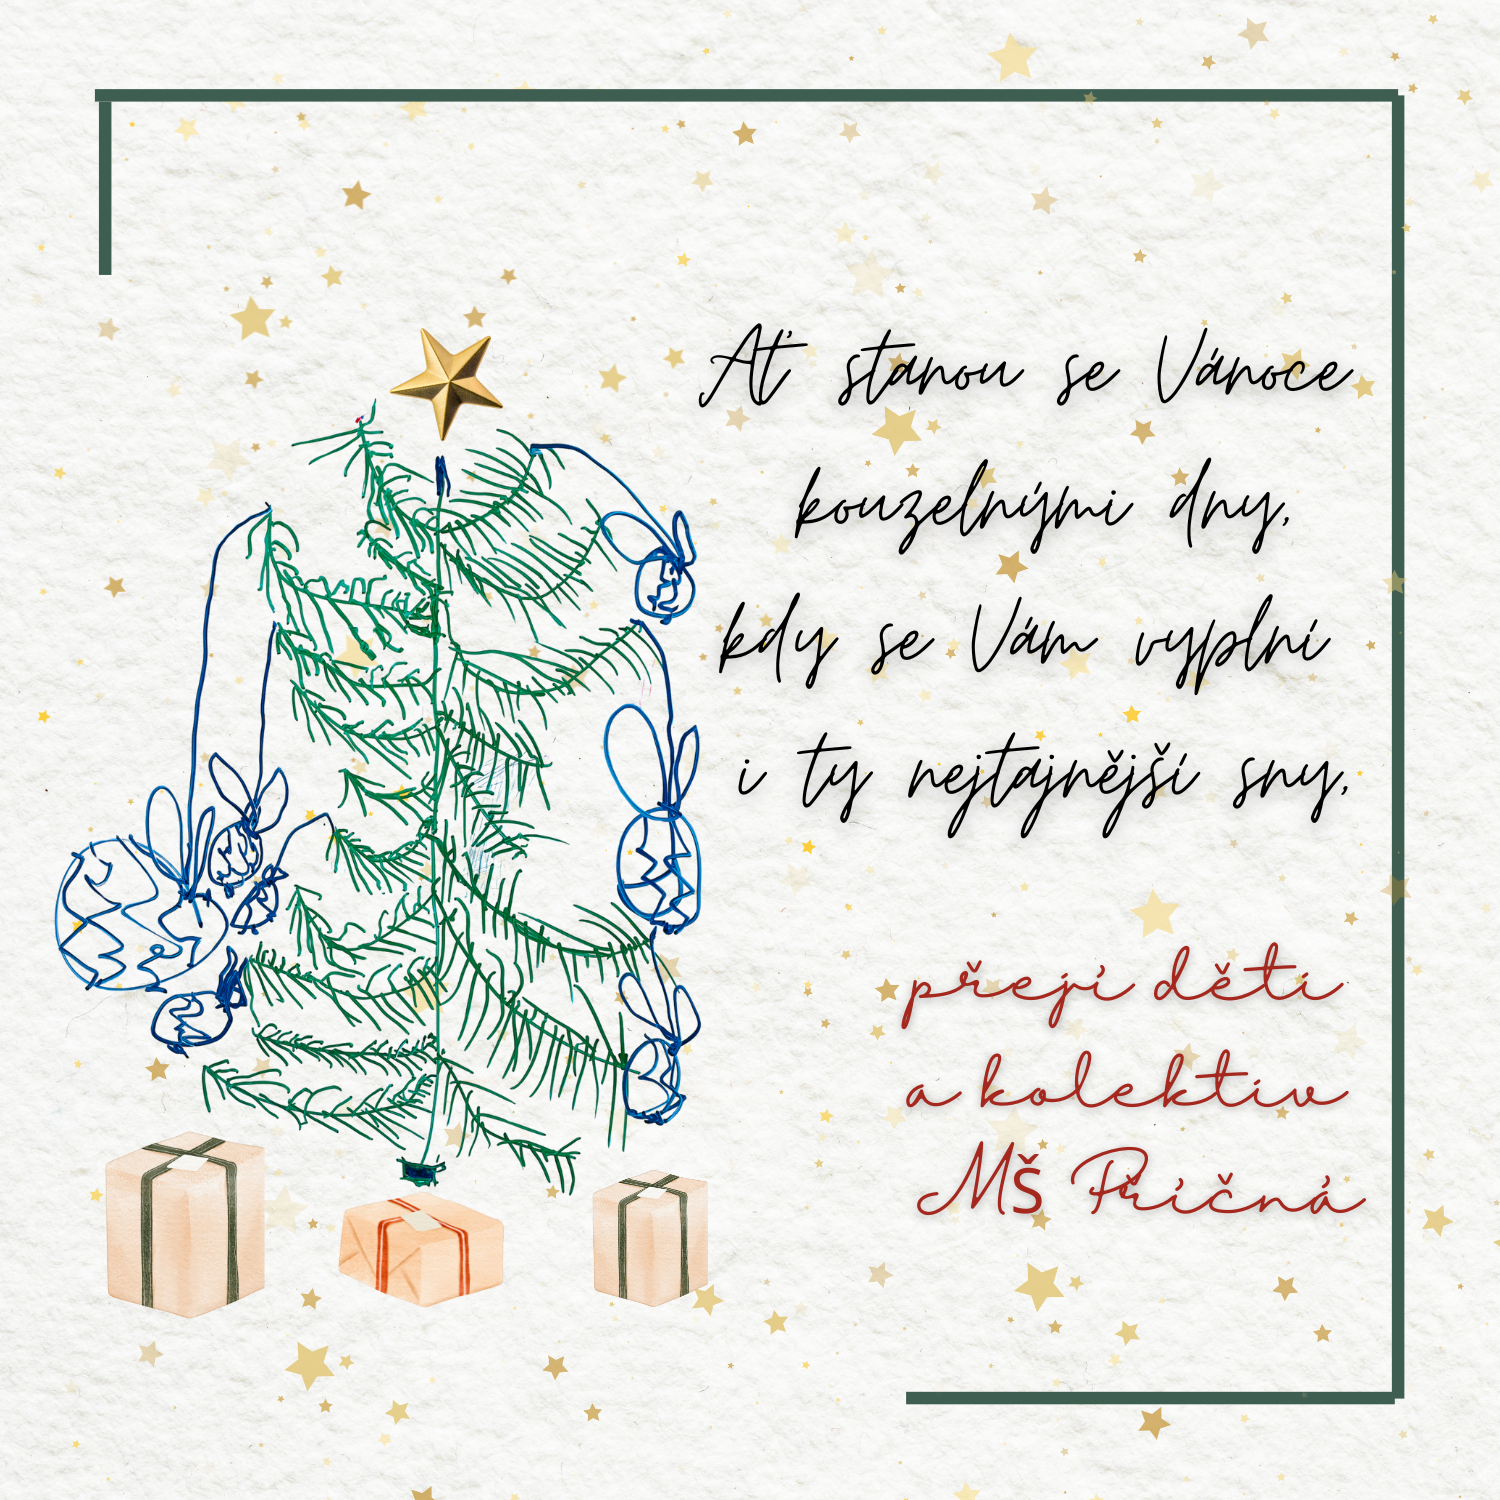 Ať stanou se Vánoce
kouzelnými dny,
kdy se Vám vyplní
i ty nejtajnější sny,
přejí děti
a kolektiv
MŠ Příčná